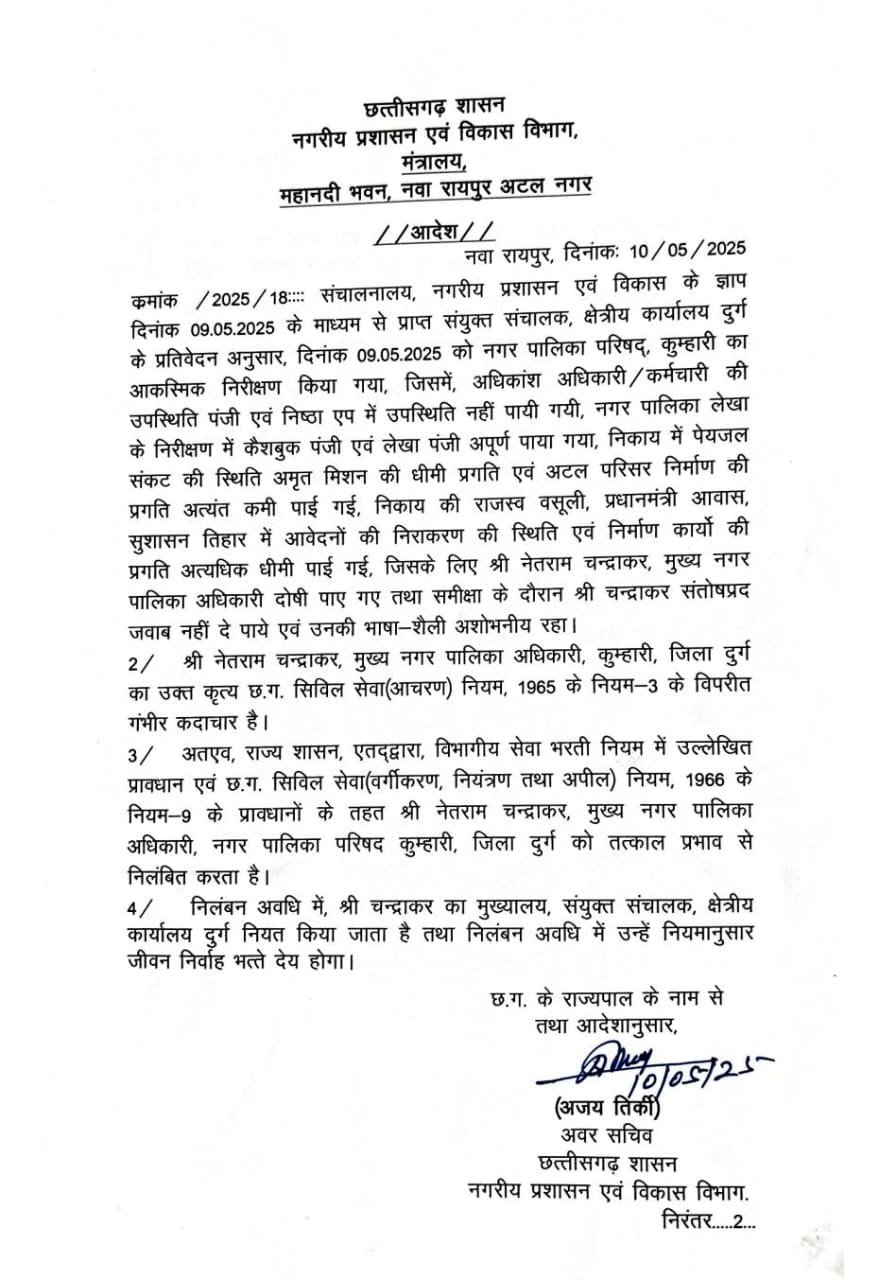 छत्तीसगढ़ शासन
नगरीय प्रशासन एवं विकास विभाग,
मंत्रालय,
महानदी भवन, नवा रायपुर अटल नगर
//आदेश//
नवा रायपुर, दिनांकः 10/05/2025
कमांक /2025/18:::: संचालनालय, नगरीय प्रशासन एवं विकास के ज्ञाप
दिनांक 09.05.2025 के माध्यम से प्राप्त संयुक्त संचालक, क्षेत्रीय कार्यालय दुर्ग
के प्रतिवेदन अनुसार, दिनांक 09.05.2025 को नगर पालिका परिषद्, कुम्हारी का
आकस्मिक निरीक्षण किया गया, जिसमें, अधिकांश अधिकारी/कर्मचारी की
उपस्थिति पंजी एवं निष्ठा एप में उपस्थिति नहीं पायी गयी, नगर पालिका लेखा
के निरीक्षण में कैशबुक पंजी एवं लेखा पंजी अपूर्ण पाया गया, निकाय में पेयजल
संकट की स्थिति अमृत मिशन की धीमी प्रगति एवं अटल परिसर निर्माण की
प्रगति अत्यंत कमी पाई गई, निकाय की राजस्व वसूली, प्रधानमंत्री आवास,
सुशासन तिहार में आवेदनों की निराकरण की स्थिति एवं निर्माण कार्यो की
प्रगति अत्यधिक धीमी पाई गई, जिसके लिए श्री नेतराम चन्द्राकर, मुख्य नगर
पालिका अधिकारी दोषी पाए गए तथा समीक्षा के दौरान श्री चन्द्राकर संतोषप्रद
जवाब नहीं दे पाये एवं उनकी भाषा–शैली अशोभनीय रहा।
2/ श्री नेतराम चन्द्राकर, मुख्य नगर पालिका अधिकारी, कुम्हारी, जिला दुर्ग
का उक्त कृत्य छ.ग. सिविल सेवा(आचरण) नियम, 1965 के नियम–3 के विपरीत
गंभीर कदाचार है।
3/ अतएव, राज्य शासन, एतद्द्वारा, विभागीय सेवा भरती नियम में उल्लेखित
प्रावधान एवं छ.ग. सिविल सेवा(वर्गीकरण, नियंत्रण तथा अपील) नियम, 1966 के
नियम–9 के प्रावधानों के तहत श्री नेतराम चन्द्राकर, मुख्य नगर पालिका
अधिकारी, नगर पालिका परिषद कुम्हारी, जिला दुर्ग को तत्काल प्रभाव से
निलंबित करता है।
4/ निलंबन अवधि में, श्री चन्द्राकर का मुख्यालय, संयुक्त संचालक, क्षेत्रीय
कार्यालय दुर्ग नियत किया जाता है तथा निलंबन अवधि में उन्हें नियमानुसार
जीवन निर्वाह भत्ते देय होगा।
छ.ग. के राज्यपाल के नाम से
तथा आदेशानुसार,
10/05/25
(अजय तिर्की)
अवर सचिव
छत्तीसगढ़ शासन
नगरीय प्रशासन एवं विकास विभाग.
निरंतर.....2...